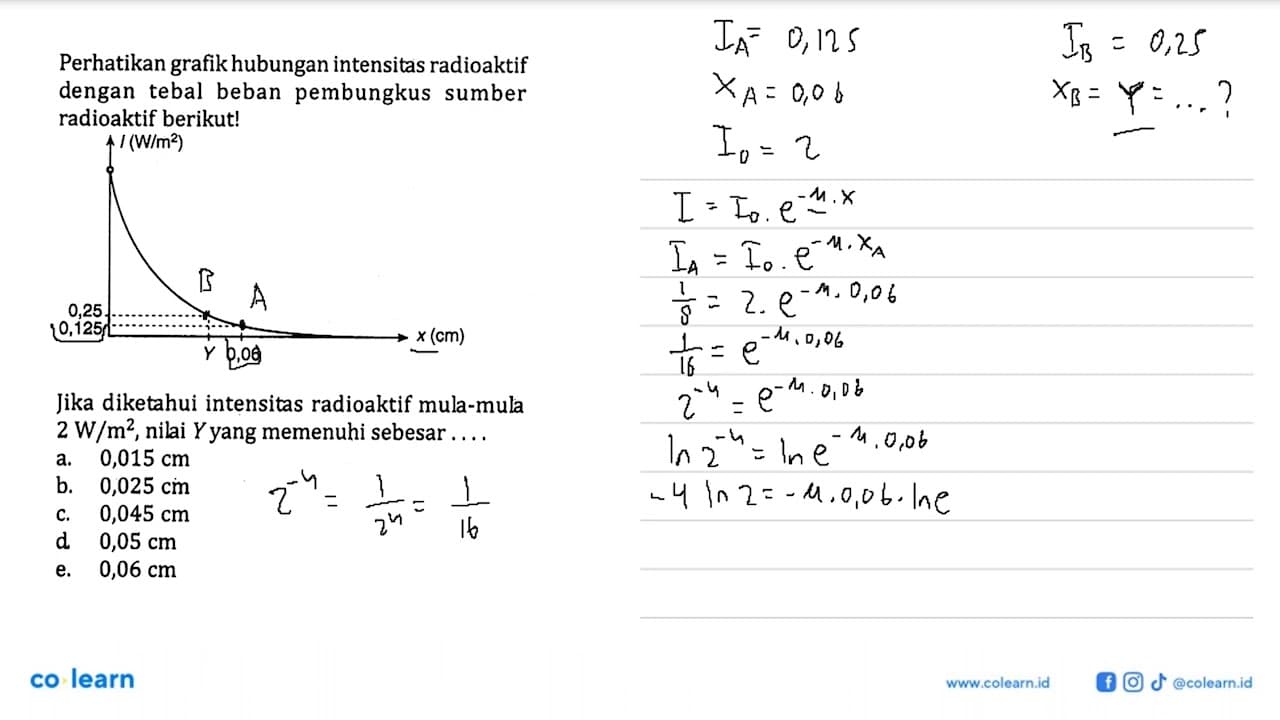 Perhatikan grafik hubungan intensitas radioaktif
dengan tebal beban pembungkus sumber
radioaktif berikut!
I (W/m²)
B
A
0,25
0,125
x (cm)
Y 0,06
Jika diketahui intensitas radioaktif mula-mula
2 W/m², nilai Y yang memenuhi sebesar . . . .
a. 0,015 cm
b. 0,025 cm
c. 0,045 cm
d 0,05 cm
e. 0,06 cm
2⁻⁴ = 1/2⁴ = 1/16
I_A = 0,125
X_A = 0,06
I_0 = 2
I_B = 0,25
X_B = Y = ... ?
I = I_0 . e^(-μ . x)
I_A = I_0 . e^(-μ . X_A)
1/8 = 2 . e^(-μ . 0,06)
1/16 = e^(-μ . 0,06)
2⁻⁴ = e^(-μ . 0,06)
ln 2⁻⁴ = ln e^(-μ . 0,06)
-4 ln 2 = -μ . 0,06 . ln e
co learn
www.colearn.id
@colearn.id